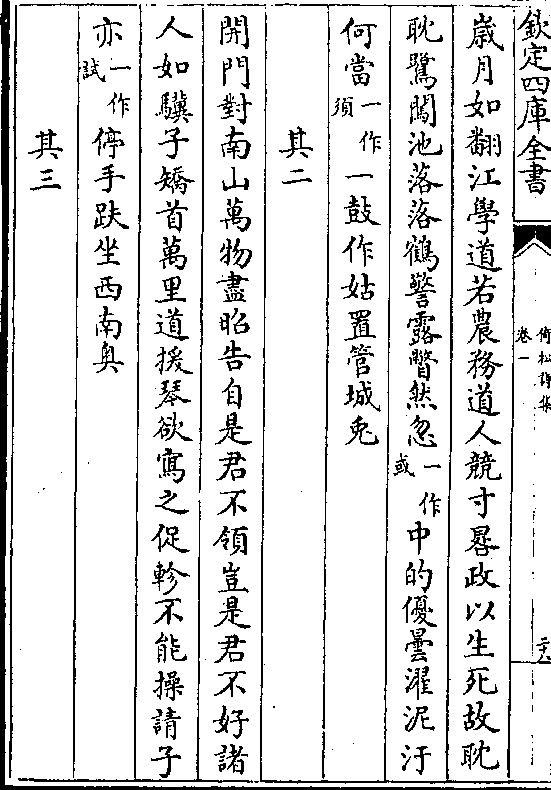 欽定四庫全書
倚松詩集
卷一
二十八
歲月如翻江學道若農務道人競寸晷政以生死故耽
耽鷺闖池落落鶴警露瞥然忽一作或中的優曇濯泥汙
何當一作須一鼓作姑置管城兎
其二
開門對南山萬物盡昭告自是君不領豈是君不好諸
人如驥子矯首萬里道援琴欲寫之促軫不能操請子
亦一作試停手趺坐西南奥
其三